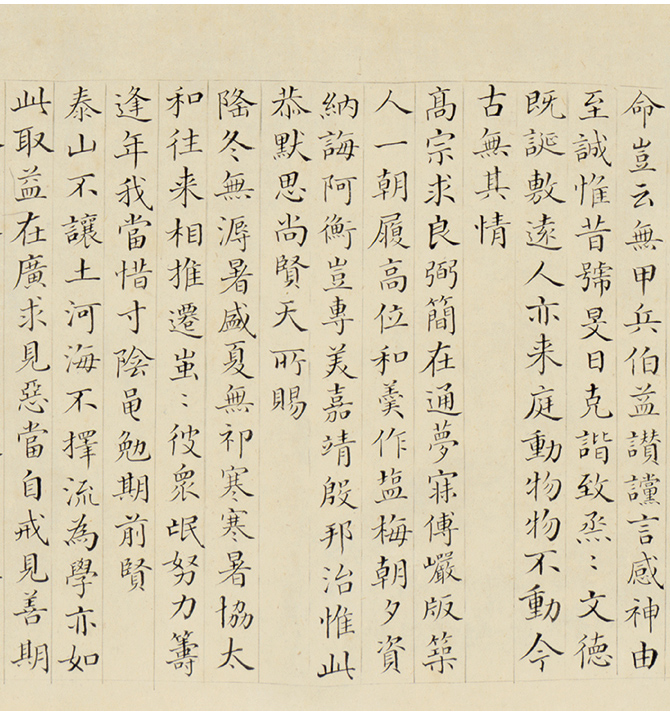 命豈云無甲兵伯益讃讜言感神由
至誠惟昔號旻日克諧致烝〻文德
既誕敷遠人亦来庭動物物不動今
古無其情
髙宗求良弼簡在通夢寐傅巖版築
人一朝履高位和羹作塩梅朝夕資
納誨阿衡豈專美嘉靖殷邦治惟此
恭默思尚賢天所賜
隆冬無溽暑盛夏無祁寒寒暑協太
和往来相推遷蚩〻彼眾氓努力籌
逢年我當惜寸陰黽勉期前賢
泰山不讓土河海不擇流為學亦如
此取益在廣求見惡當自戒見善期